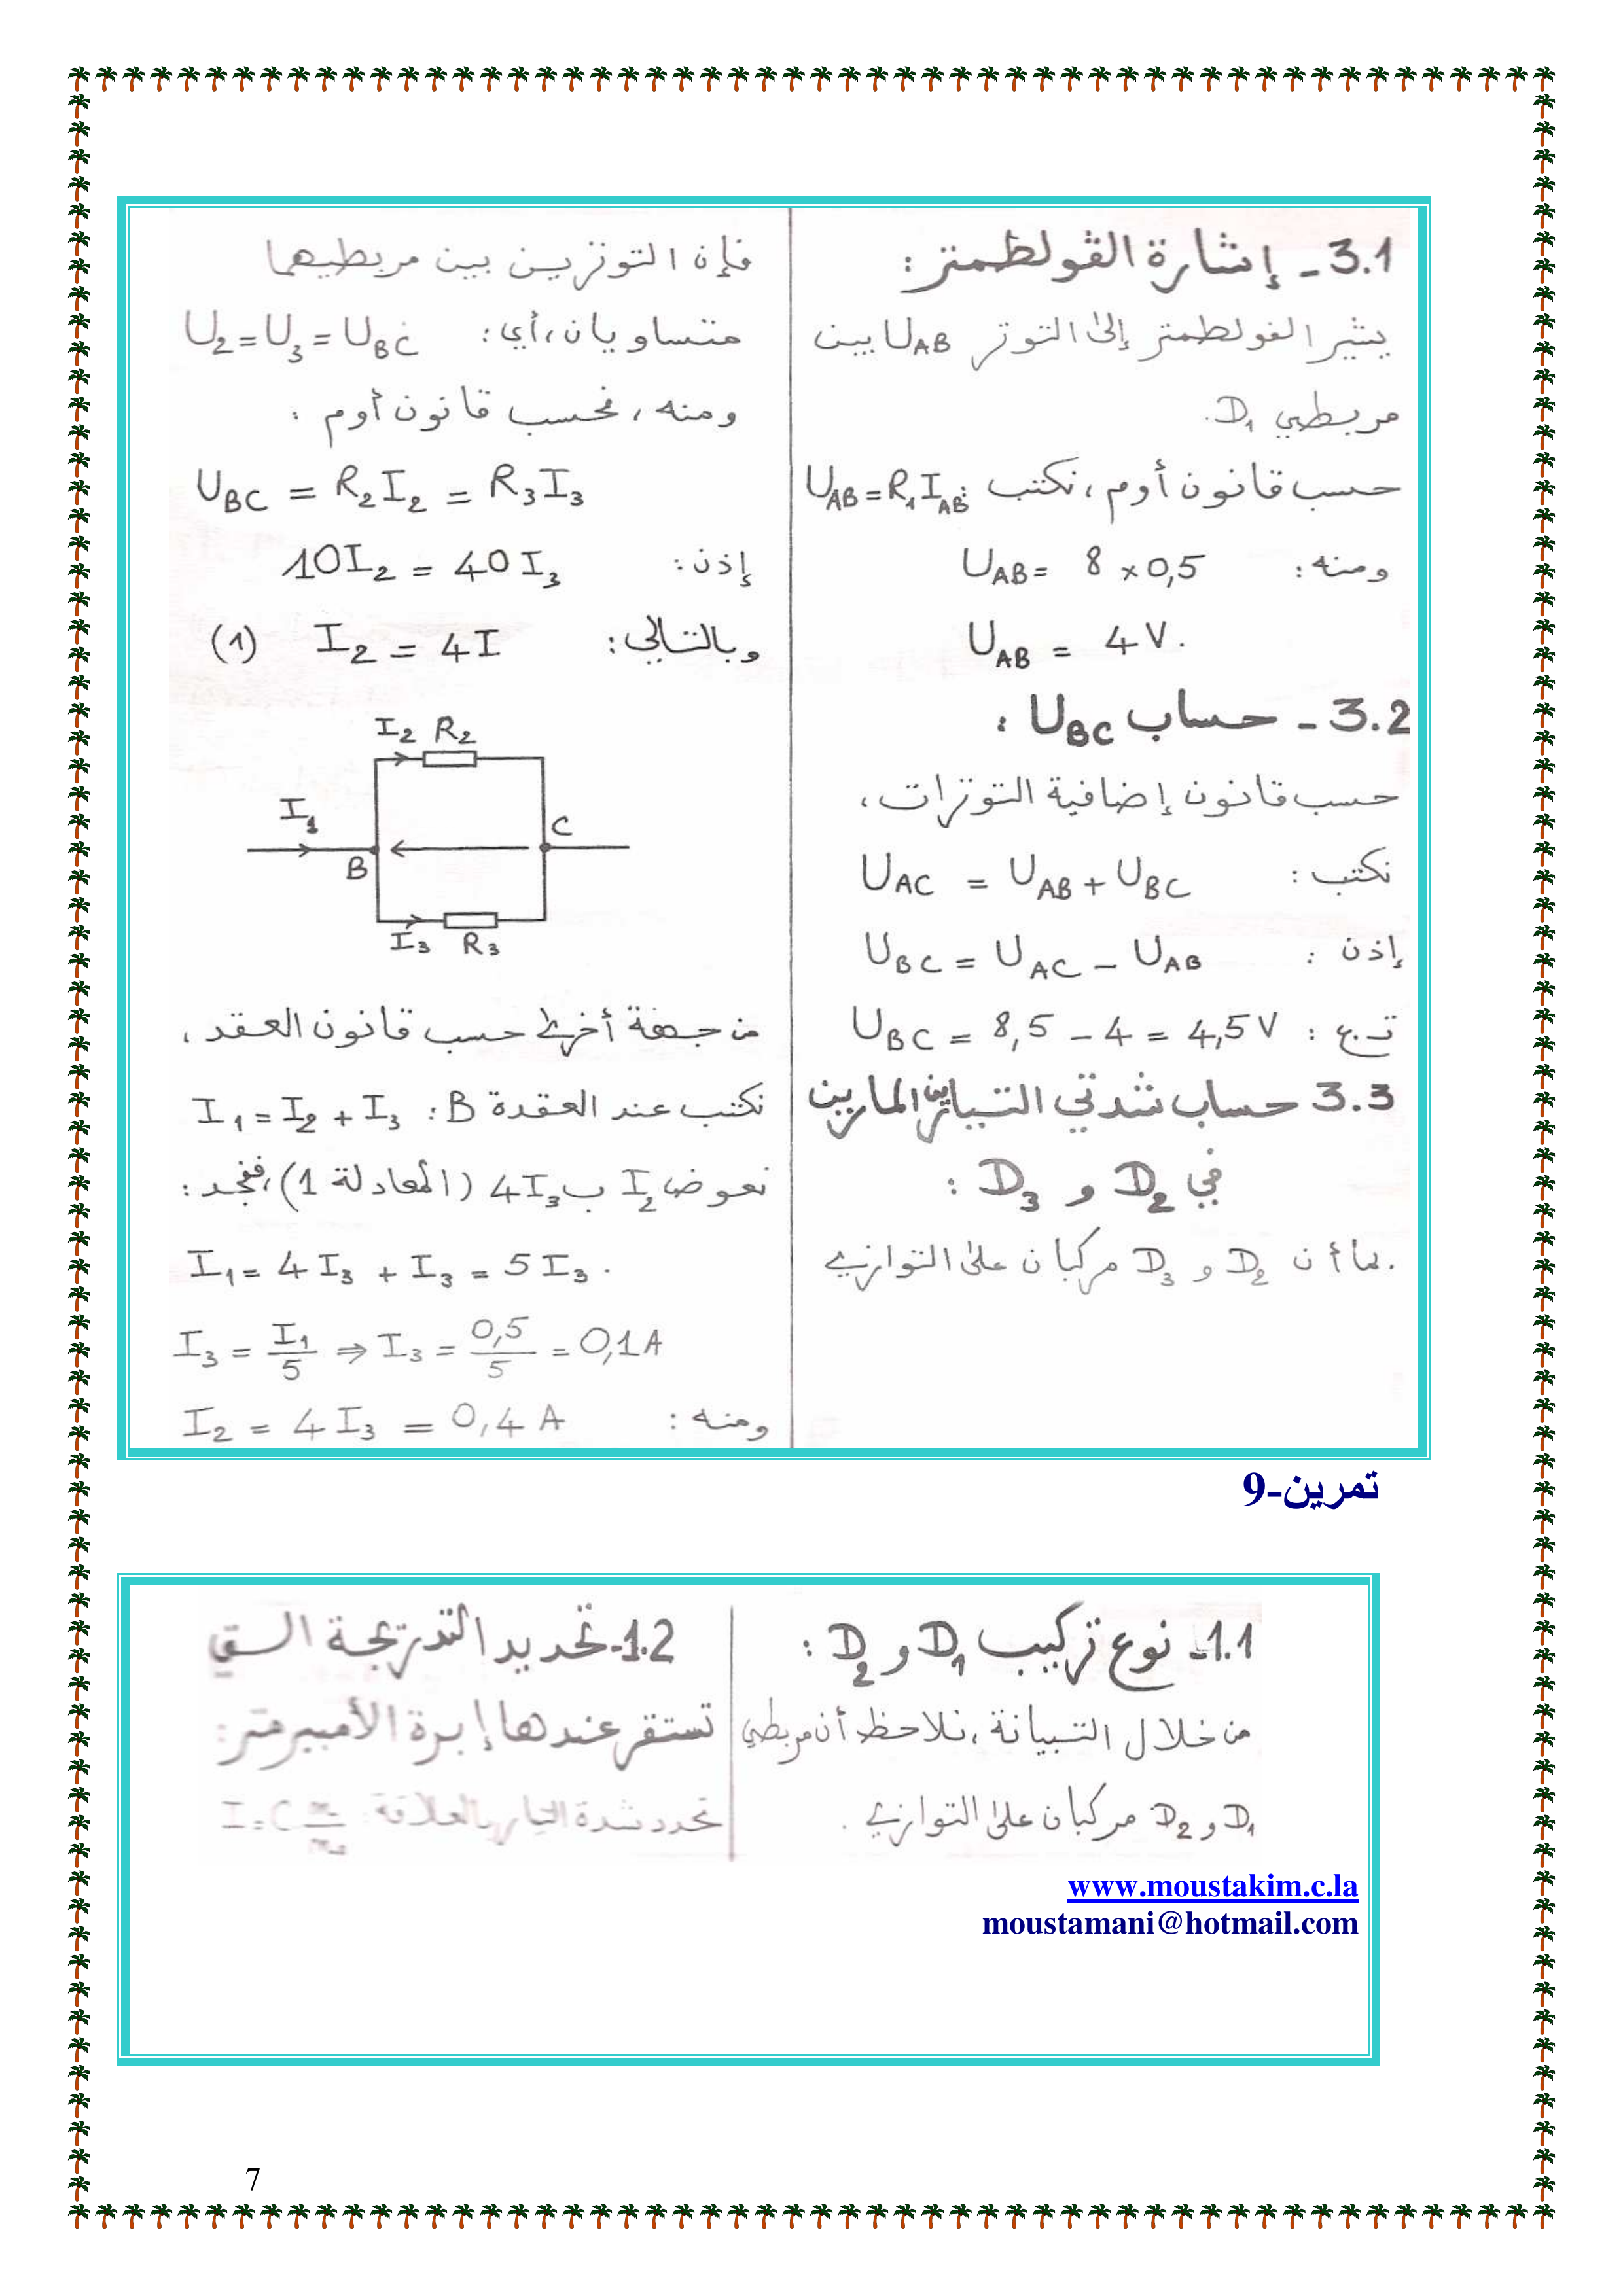 3.1 - إشارة الڤولطمتر :
يشير الفولطمتر إلى التوتر U_AB بين
مربطي D₁.
حسب قانون أوم، نكتب : U_AB = R₁ I_AB
ومنه : U_AB = 8 × 0,5
U_AB = 4 V.
3.2 - حساب U_BC :
حسب قانون إضافية التوترات،
نكتب : U_AC = U_AB + U_BC
إذن : U_BC = U_AC - U_AB
ت.ع : U_BC = 8,5 - 4 = 4,5 V
3.3 حساب شدتي التيارين المارين
في D₂ و D₃ :
بما أن D₂ و D₃ مركبان على التوازي
فإن التوترين بين مربطيهما
متساويان، أي : U₂ = U₃ = U_BC
ومنه، فحسب قانون أوم :
U_BC = R₂I₂ = R₃I₃
إذن : 10I₂ = 40I₃
وبالتالي : I₂ = 4I (1)
I₂ R₂
I₁
C
B
I₃ R₃
من جهة أخرى حسب قانون العقد،
نكتب عند العقدة B : I₁ = I₂ + I₃
نعوض I₂ ب 4I₃ (المعادلة 1)، فنجد :
I₁ = 4I₃ + I₃ = 5I₃.
I₃ = I₁/5 ⇒ I₃ = 0,5/5 = 0,1A
ومنه : I₂ = 4I₃ = 0,4 A
تمرين-9
1.1- نوع تركيب D₁ و D₂ :
من خلال التبيانة، نلاحظ أن مربطي
D₁ و D₂ مركبان على التوازي .
1.2- تحديد التدريجة التي
تستقر عندها إبرة الأمبيرمتر :
تحدد شدة التيار بالعلاقة : I = C
www.moustakim.c.la
moustamani@hotmail.com
7